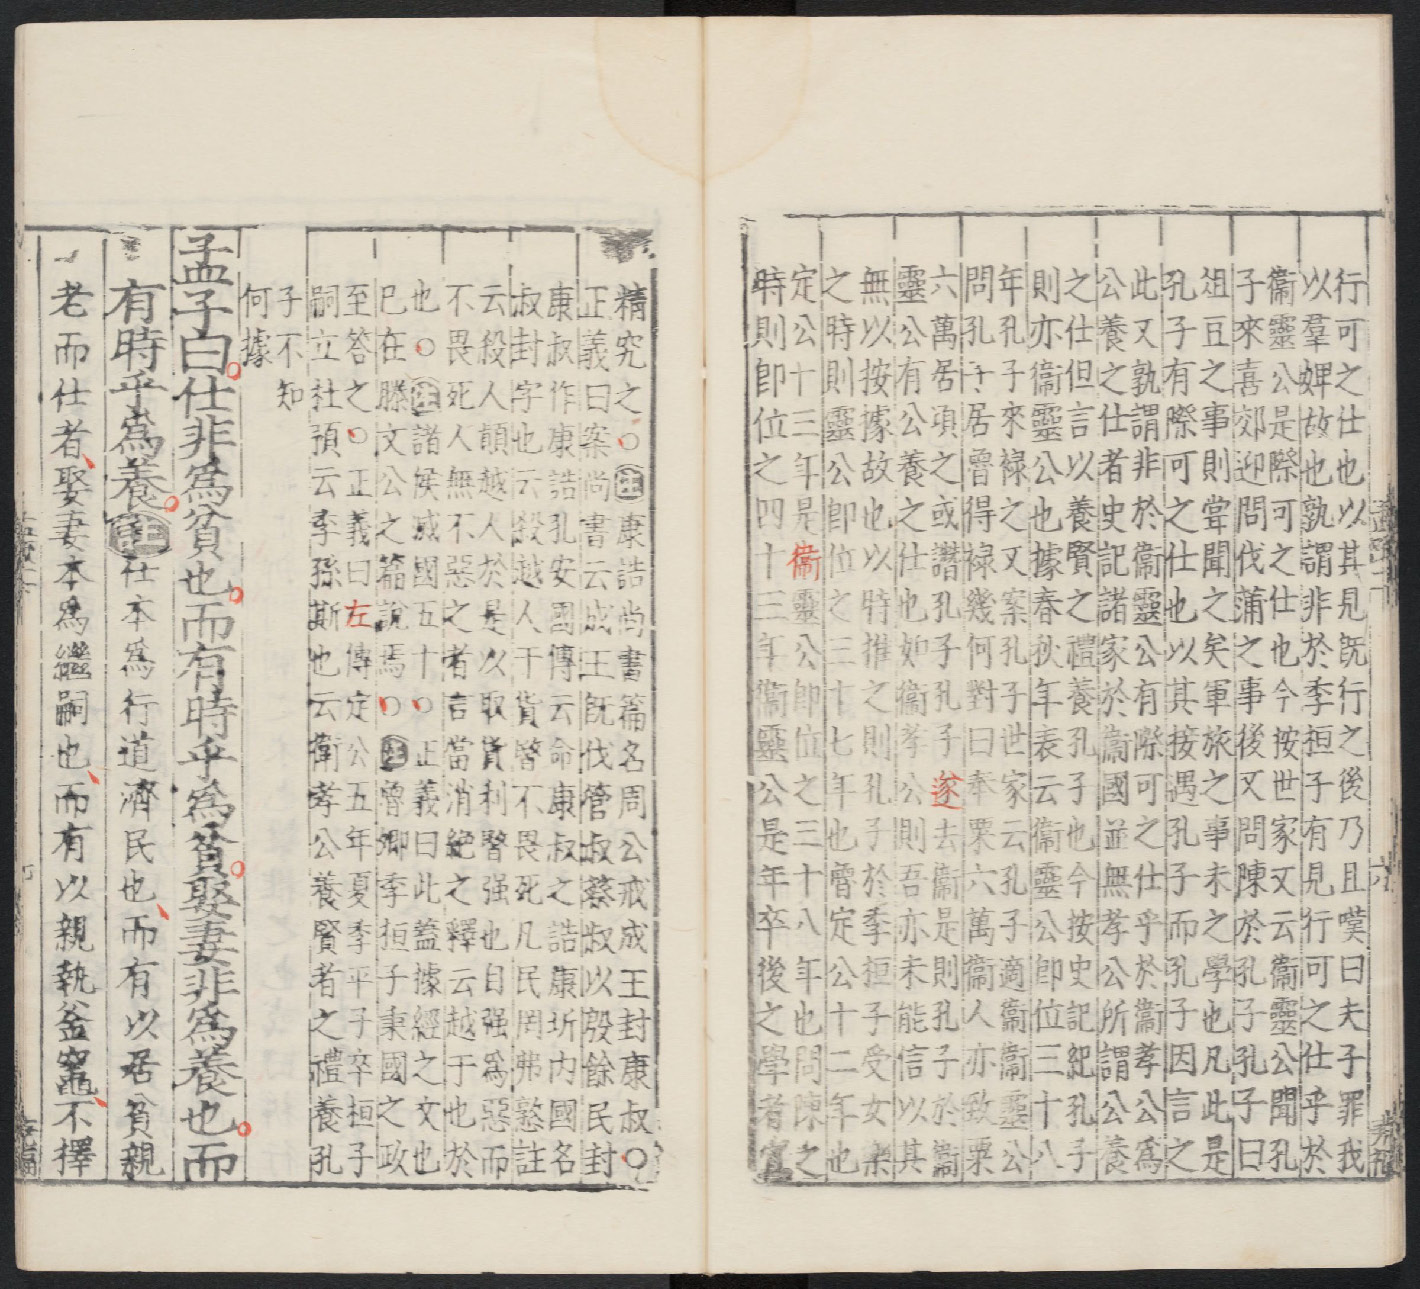 行可之仕也以其見既行之後乃且嘆曰夫子罪我
以羣婢故也孰謂非於季桓子有見行可之仕乎於
衞靈公是際可之仕也今按世家文云衞靈公聞孔
子來喜郊迎問伐蒲之事後又問陳於孔子孔子曰
俎豆之事則甞聞之矣軍旅之事未之學也凡此是
孔子有際可之仕也以其接遇孔子而孔子因言之
此又孰謂非於衞靈公有際可之仕乎於衞孝公爲
公養之仕者史記諸家於衞國並無孝公所謂公養
之仕但言以養賢之禮養孔子也今按史記紀孔子
則亦衞靈公也據春秋年表云衞靈公即位三十八
年孔子來祿之又案孔子世家云孔子適衞衞靈公
問孔子居魯得祿幾何對曰奉粟六萬衞人亦致粟
六萬居頃之或譖孔子孔子遂去衞是則孔子於衞
靈公有公養之仕也如衞孝公則吾亦未能信以其
無以按據故也以時推之則孔子於季桓子受女樂
之時則靈公即位之三十七年也魯定公十二年也
定公十三年是衞靈公即位之三十八年也問陳之
時則即位之四十三年衞靈公是年卒後之學者宜
精究之○注康誥尚書篇名周公戒成王封康叔○
正義曰案尚書云成王既伐管叔蔡叔以殷餘民封
康叔作康誥孔安國傳云命康叔之誥康圻内國名
叔封字也云殺越人于貨暋不畏死凡民罔弗憝註
云殺人顛越人於是以取貨利暋强也自强爲惡而
不畏死人無不惡之者言當消絶之釋云越于也於
也○注諸侯滅國五十○正義曰此蓋據經之文也
已在滕文公之篇說焉○注魯卿季桓子秉國之政
至答之○正義曰左傳定公五年夏季平子卒桓子
嗣立杜預云季孫斯也云衛孝公養賢者之禮養孔
子不知
何據
孟子曰仕非爲貧也而有時乎爲貧娶妻非爲養也而
有時乎爲養注仕本爲行道濟民也而有以居貧親
老而仕者娶妻本爲繼嗣也而有以親執釜竈不擇